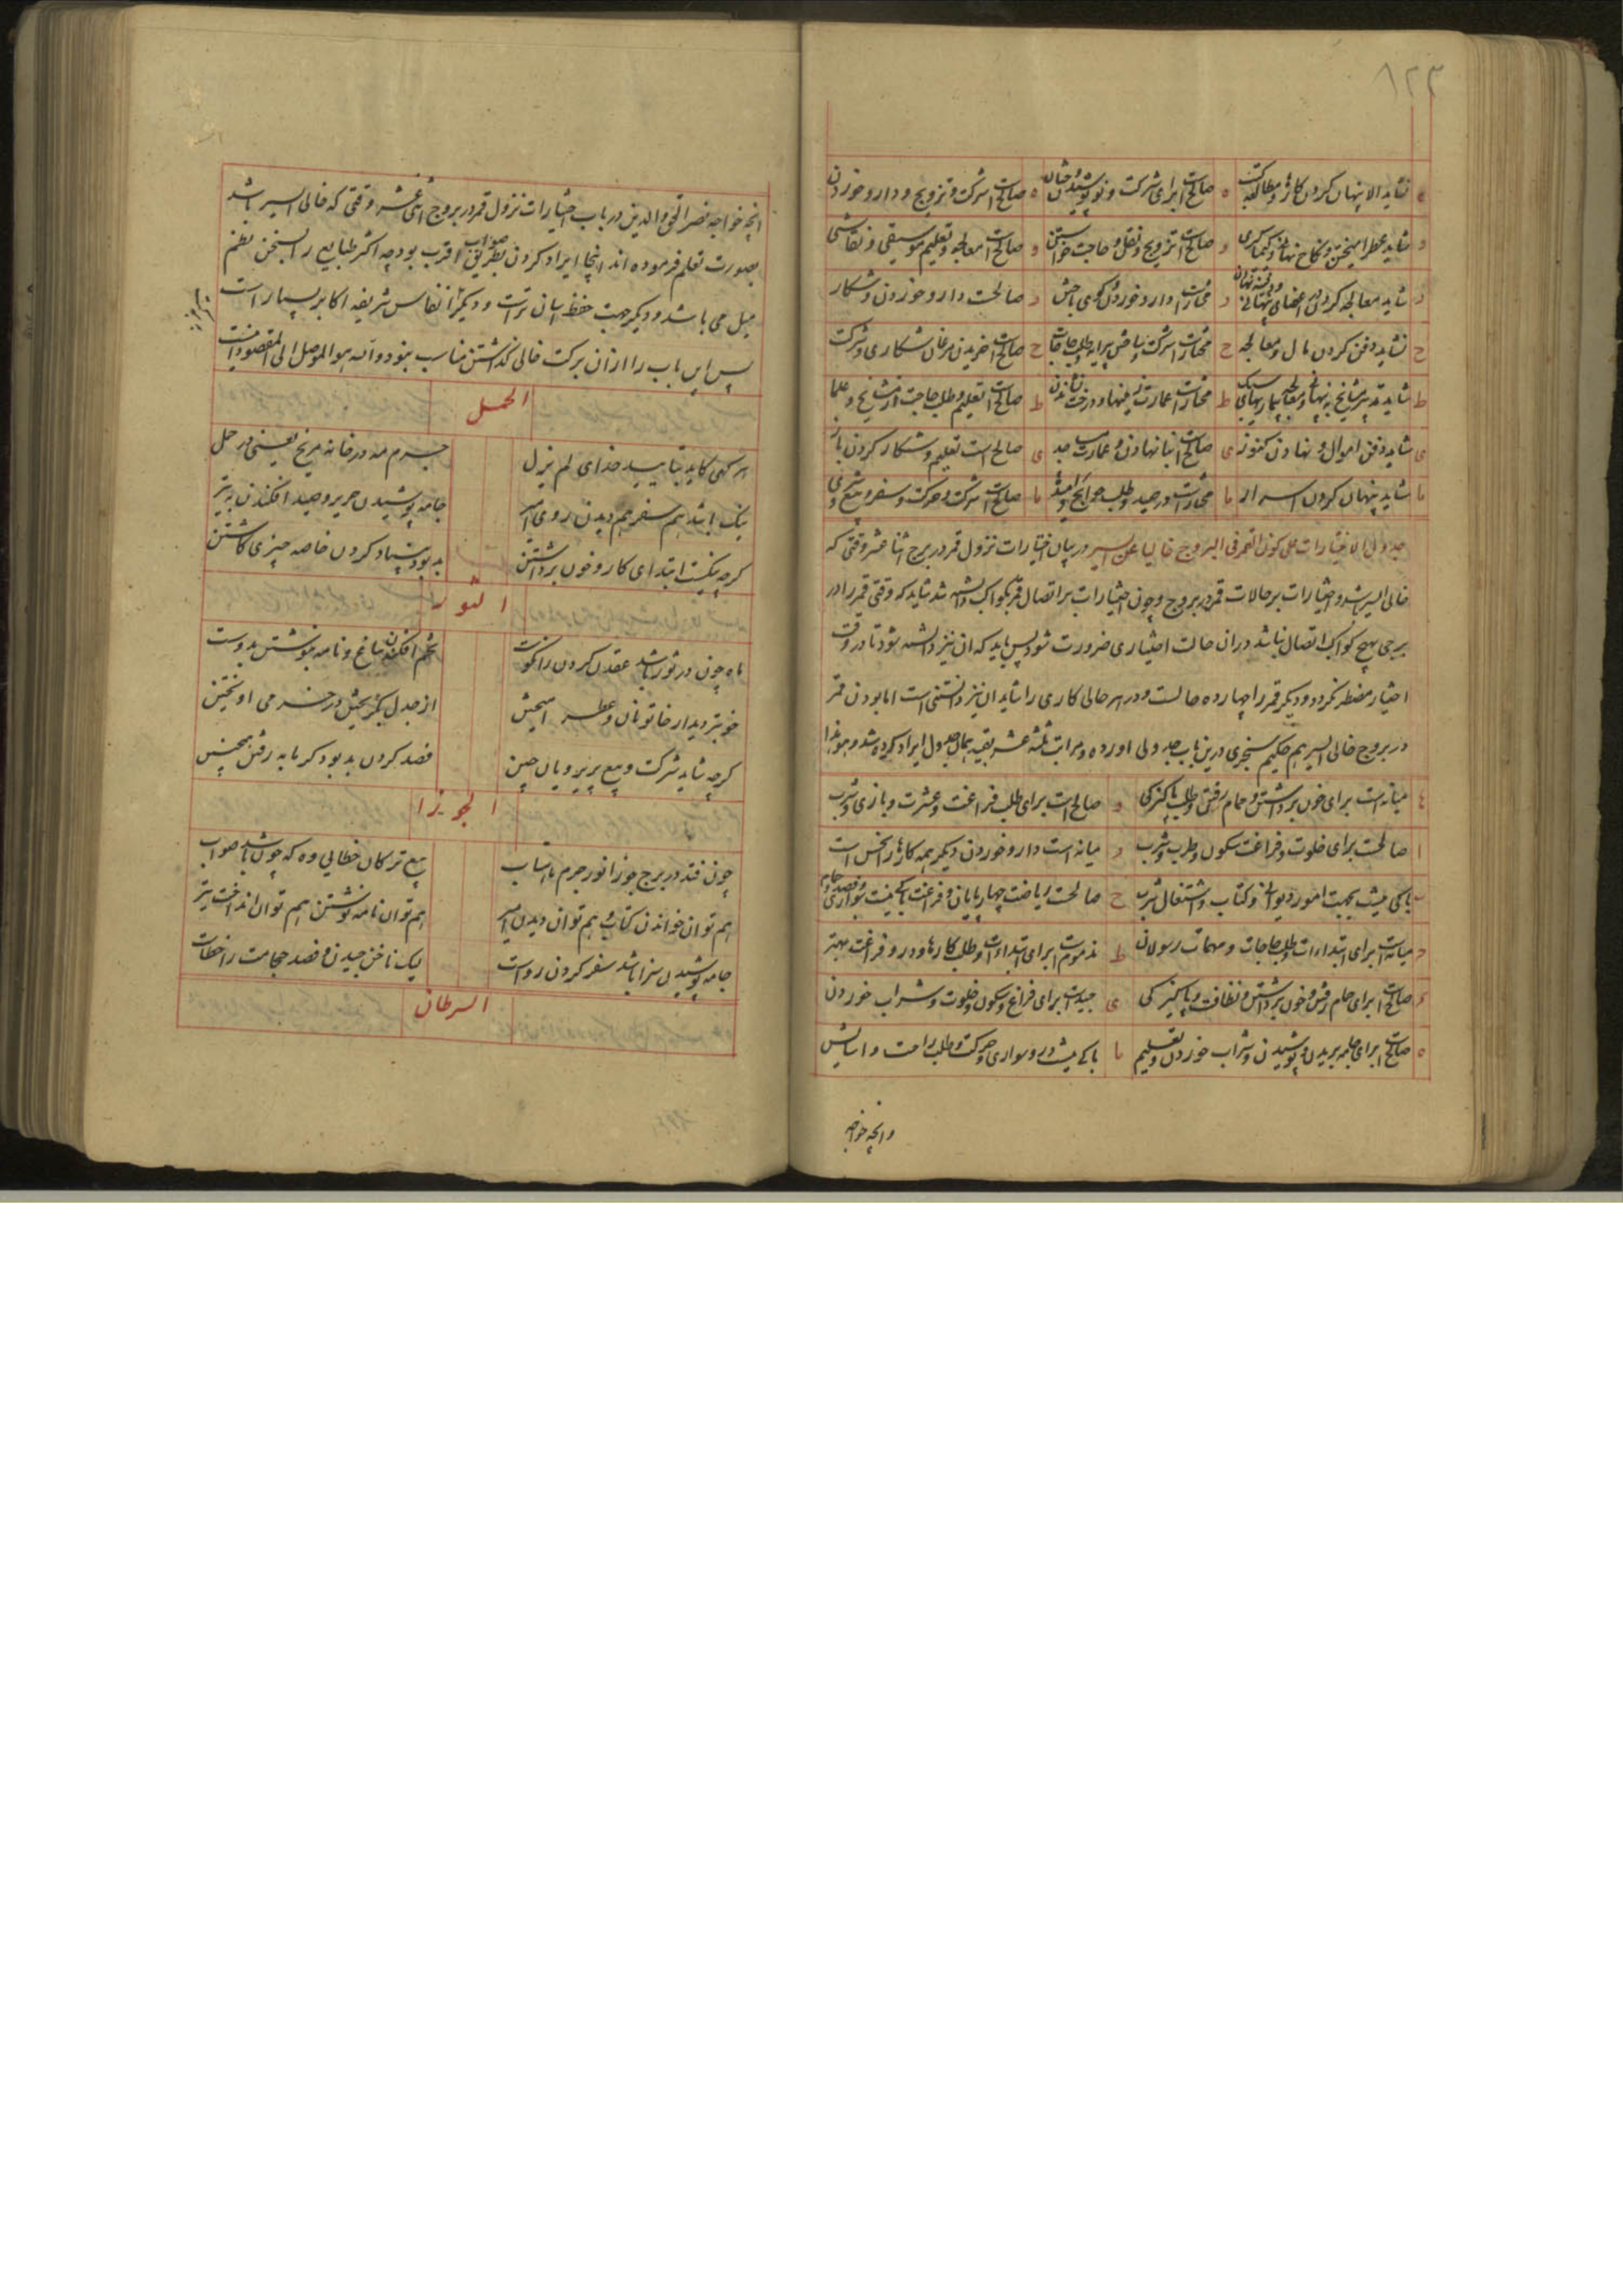 ٨٢٣
ه نشاید الا پنهان کردن کارها و مطالعه کتب ه صالح است برای شرکت و نو پوشیدن ه صالح است شرکت و تزویج و دارو خوردن
و شاید عطر آمیختن و نکاح نهانی و کیمیاگری و صالح است تزویج و نقل و حاجت خواستن و صالح است معالجه و تعلیم موسیقی و نقاشی
شاید معالجه کردن اعضای نهانی دارو خوردن کوی باختن صالحست دارو خوردن و شکار
ح نشاید دفن کردن مال و معالجه ح شرکت و طلب حاجات ح صالح است خریدن مرغان شکاری و شرکت
ط شاید تدبیر ط عمارت زمینها و درخت نشاندن ط صالح است تعلیم و طلب حاجت از مشایخ و علما
ی شاید دفن اموال و نهادن کنوز ی صالح است بنا نهادن و عمارت ی صالح است تعلیم و شکار کردن باز
یا شاید پنهان کردن اسرار یا در صید و طلب حوایج یا صالح است شرکت و حرکت و سفر و بیع و شری
جدول الاختیارات علی کون القمر فی البروج خالیا عن السیر در بیان اختیارات نزول قمر در برج اثنا عشر وقتی که
خالی السیر باشد و اختیارات بر حالات قمر در بروج و چون اختیارات بر اتصال قمر بکواکب دانسته شد شاید که وقتی قمر را در
برجی بهیچ کواکب اتصال نباشد در ان حالت اختیاری ضرورت شود پس باید که ان نیز دانسته شود تا در وقت
اختیار مضطر نکردد و دیکر قمر را چهارده حالست و در هر حالی کاری را شاید ان نیز دانستنی است اما بودن قمر
در بروج خالی السیر هم حکیم سنجری درین باب جدولی اورده و مراتب ثلثه عشر بقیه بهمان جدول ایراد کرده شد و هو هذا
میانه است برای خون برداشتن و حمام رفتن و طلب پاکیزکی و صالح است برای طلب فراغت و عشرت و بازی و شرب
ا صالحست برای خلوت و فراغت سکون و طرب و شرب میانه است دارو خوردن دیکر همه کارها را نحس است
ب باکی نیست بجهت امور دیوانی و کتاب و اشتغال شرب ح صالحست ریاضت چهارپایان و فراغت باکی نیست سواری
میانه است برای ابتداءات و طلب حاجات و مهمات رسولان ط مذموم است برای ابتداءات و طلب کارها و در او فراغت بهتر
صالح است برای حمام رفتن و خون برداشتن و نظافت و پاکیزکی ی جید است برای فراغ و سکون و خلوت و شراب خوردن
ه صالح است برای جامه بریدن و پوشیدن و شراب خوردن و تعلیم یا باکی نیست در و سواری و حرکت و طلب راحت و اسایش
و انچه خواجه
انچه خواجه نصیر الحق والدین در باب اختیارات نزول قمر در بروج اثنی عشر وقتی که خالی السیر باشد
بصورت نظم فرموده اند اینجا ایراد کردن بطریق صواب اقرب بود چه اکثر طبایع را بسخن نظم
میل می باشد و دیکر جهت حفظ اسان تر است و دیکر انفاس شریفه اکابر بسیار است
پس این باب را از ان برکت خالی کذاشتن مناسب ننمود والله هو الموصل الی المقصود
الحمل
هر کهی کاید بتایید خدای لم یزل جرم مه در خانه مریخ یعنی در حمل
نیک باشد هم سفر هم دیدن روی امیر جامه پوشیدن حریر و صید افکندن به تیر
کرچه نیکست ابتدای کار و خون برداشتن بد بود بنیاد کردن خاصه چیزی کاشتن
الثور
ماه چون در ثور باشد عقدن کردن را نکوست تخم افکندن بباغ و نامه بنوشتن بدوست
خوبتر دیدار خاتونان و عطر امیختن از جدل بکریختن در خرمی اویختن
کرچه شاید شرکت و بیع پریرویان چین فصد کردن بد بود کرمابه رفتن همچنین
الجوزا
چون فتد در برج جوزا نور جرم ماهتاب بیع ترکان خطایی وه که چون باشد صواب
هم توان خواندن کتاب و هم توان دیدن امیر هم توان نامه نوشتن هم توان انداخت تیر
جامه پوشیدن سزا باشد سفر کردن رواست لیک ناخن چیدن و فصد حجامت را خطاست
السرطان